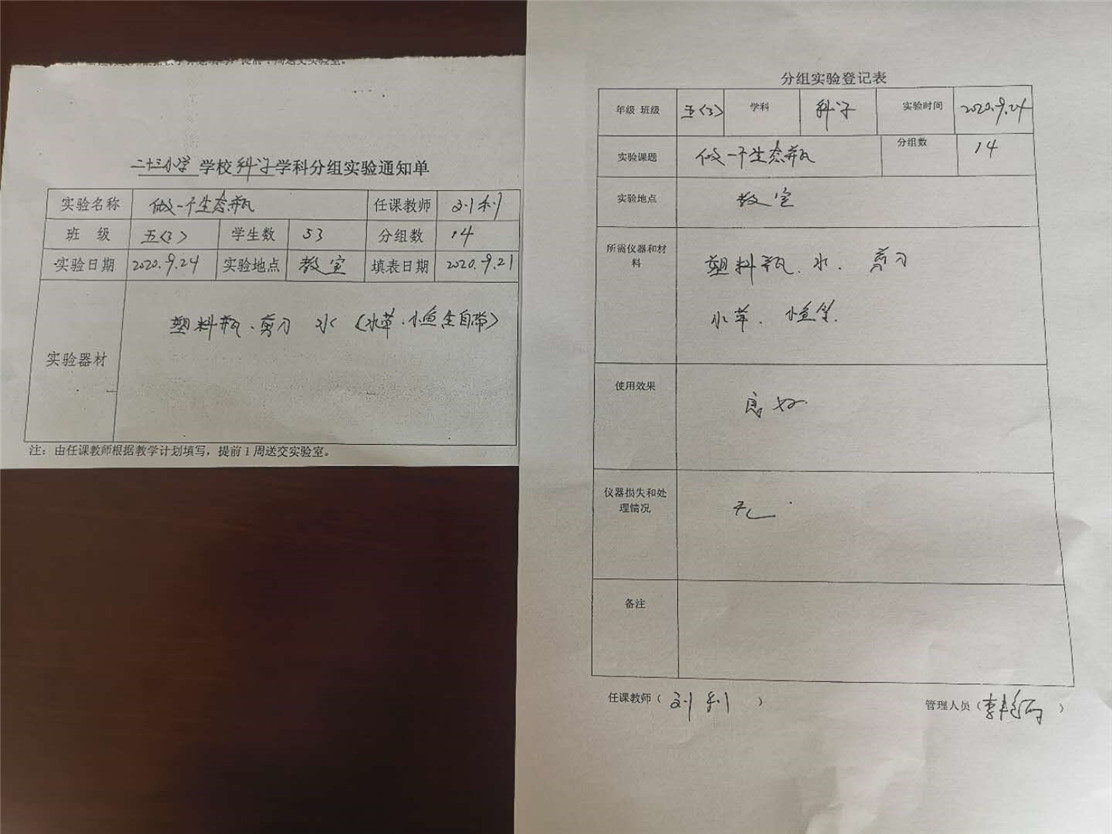 提前1周送交实验室。
二十三小学 学校 科学 学科分组实验通知单
实验名称 做一个生态瓶 任课教师 刘利
班 级 五(3) 学生数 53 分组数 14
实验日期 2020.9.24 实验地点 教室 填表日期 2020.9.21
实验器材 塑料瓶、剪刀 水 (水草、小鱼生自带)
注:由任课教师根据教学计划填写,提前1周送交实验室。
分组实验登记表
年级 班级 五(3) 学科 科学 实验时间 2020.9.24
实验课题 做一个生态瓶 分组数 14
实验地点 教室
所需仪器和材
料
塑料瓶、水、剪刀
水草、小鱼等.
使用效果 良好
仪器损失和处
理情况
无
备注
任课教师( 刘利 ) 管理人员(李 )